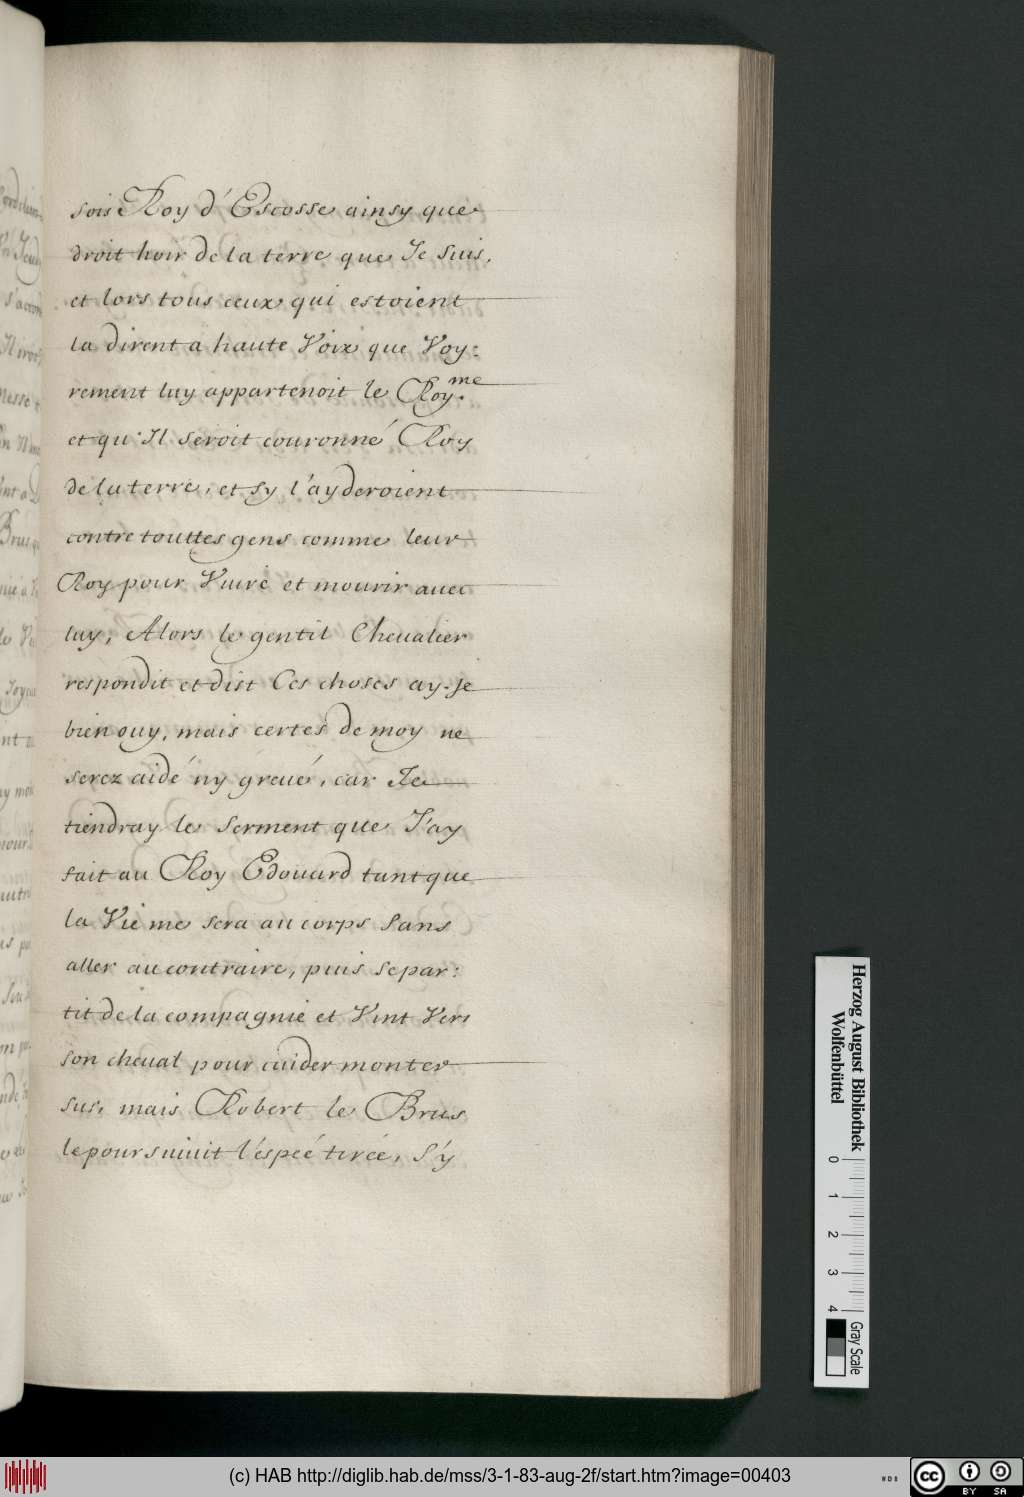 sois Roy d'Escosse ainsy que
droit hoir de la terre que Je suis,
et lors tous ceux qui estoient
la dirent a haute Voix que Voy:
rement luy appartenoit le Roy.me
et qu'Il seroit couronné Roy
de la terre, et sy l'ayderoient
contre touttes gens comme leur
Roy pour Viure et mourir auec
luy, Alors le gentil Cheualier
respondit et dist Ces choses ay-je
bien ouy, mais certes de moy ne
serez aidé ny greué, car Je
tiendray le serment que J'ay
fait au Roy Edouard tant que
la Vie me sera au corps Sans
aller au contraire, puis se par:
tit de la compagnie et Vint Vers
son cheual pour cuider monter
sus, mais Robert le Brus
le poursuiuit l'éspeé tireé, S'y
Herzog August Bibliothek
Wolfenbüttel
0 1 2 3 4
Gray Scale
(c) HAB http://diglib.hab.de/mss/3-1-83-aug-2f/start.htm?image=00403
WDB
cc BY SA